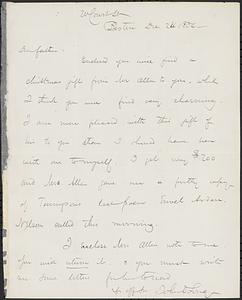 Court St
Boston Dec 24
Dear father.
Enclosed you will find a
Christmas gift from Mr Allen to you, which
I think you will find very charming.
I am more pleased with this gift of
his to you than I should have been
with one to myself. I got my $200
and Mrs. Allen gave me a pretty copy
of Tennyson's last poem Enoch Arden.
Nelson called this morning.
I enclose Mr Allen's note to me
you must return it & you must write
me some letter